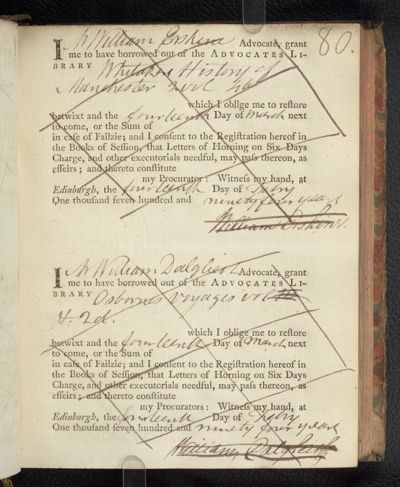 80.
I Mr William Erskine Advocate, grant
me to have borrowed out of the ADVOCATES LI-
BRARY Whitakers History of
Manchester 2 vol. 4to
which I oblige me to reſtore
betwixt and the fourteenth Day of March next
to come, or the Sum of
in caſe of Failzie; and I conſent to the Regiſtration hereof in
the Books of Seſſion, that Letters of Horning on Six Days
Charge, and other executorials needful, may paſs thereon, as
effeirs; and thereto conſtitute
my Procurator: Witneſs my hand, at
Edinburgh, the fourteenth Day of Febry
One thouſand ſeven hundred and ninety four years
William Erskine.
I Mr William Dalgleish Advocate, grant
me to have borrowed out of the ADVOCATES LI-
BRARY Osbornes voyages vol
4. 2d.
which I oblige me to reſtore
betwixt and the fourteenth Day of March next
to come, or the Sum of
in caſe of Failzie; and I conſent to the Regiſtration hereof in
the Books of Seſſion, that Letters of Horning on Six Days
Charge, and other executorials needful, may paſs thereon, as
effeirs; and thereto conſtitute
my Procurators: Witneſs my hand, at
Edinburgh, the fourteenth Day of Febry
One thouſand ſeven hundred and ninety four years
William Dalgleish